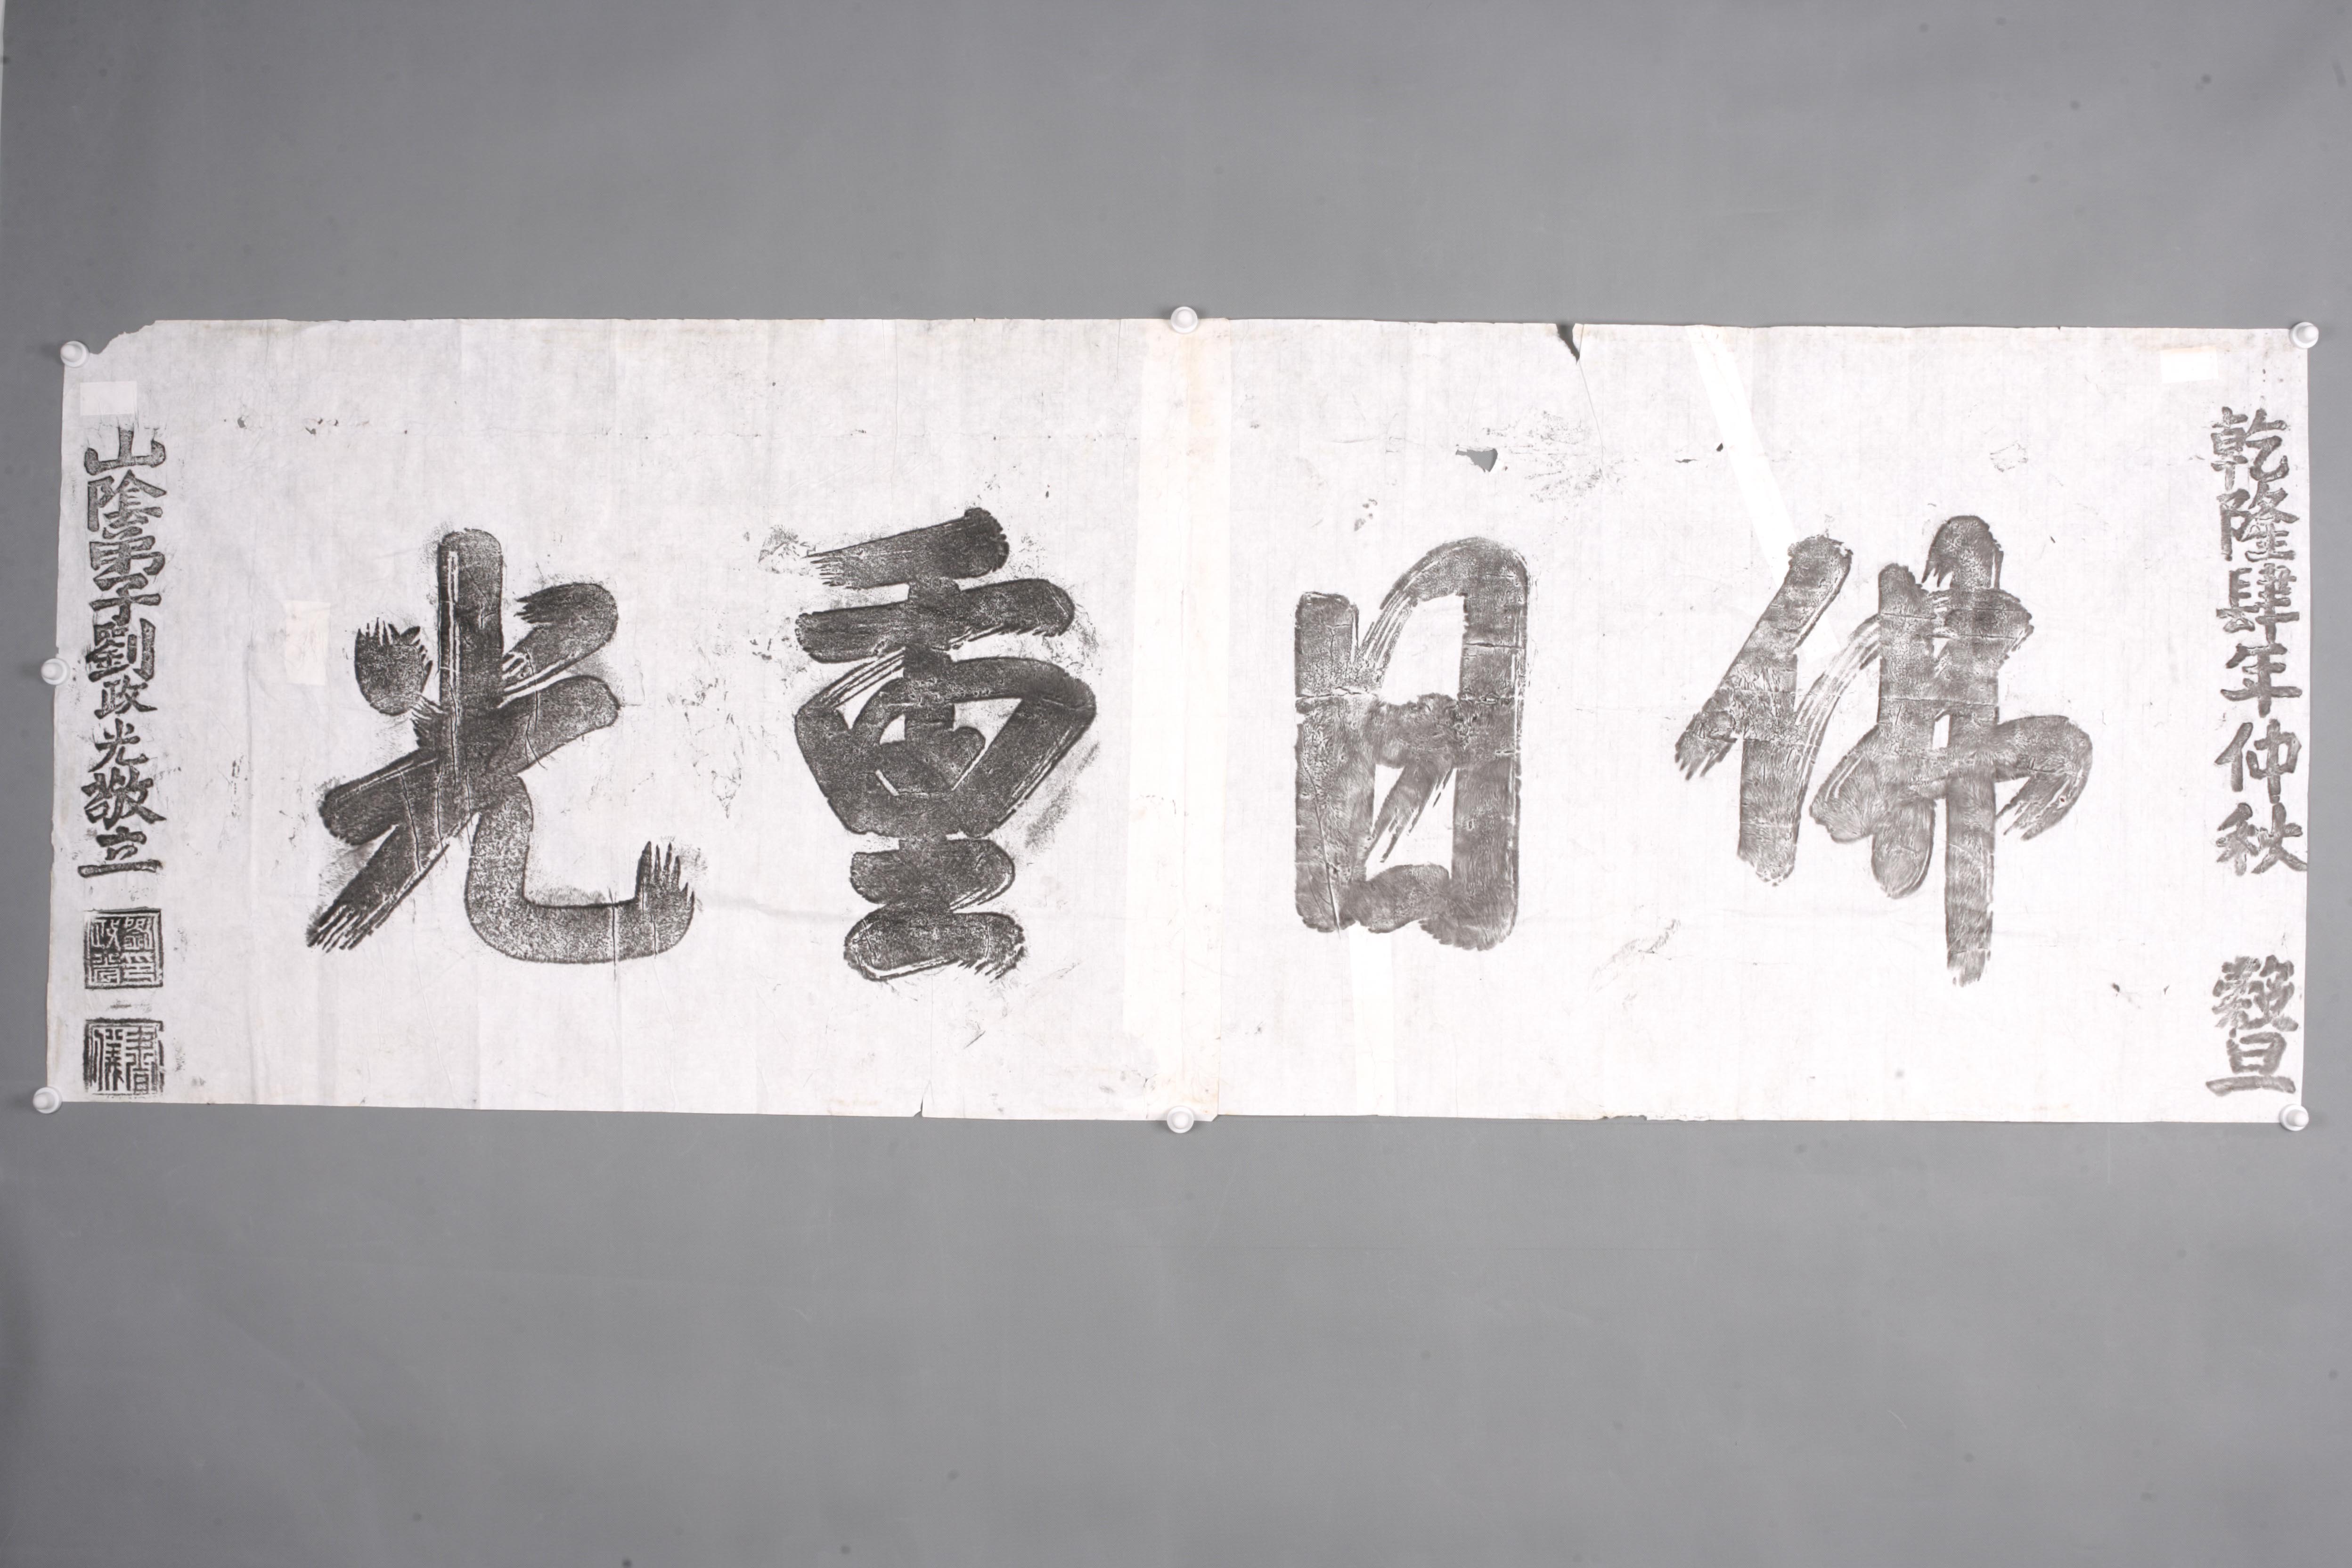 乾隆肆年仲秋　穀旦
佛日重光
山陰弟子劉政光敬立